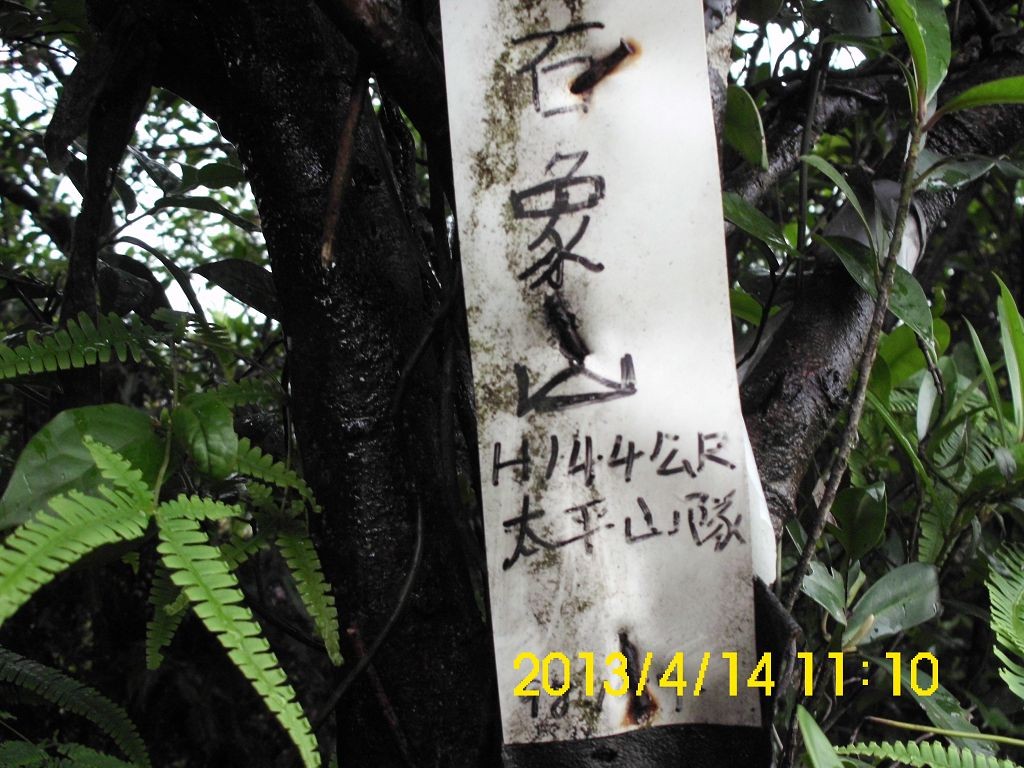 石
象
山
H144公尺
太平山隊
2013/4/14 11:10